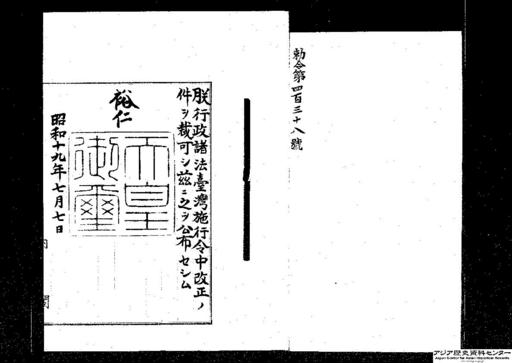 勅令第四百三十八號
朕行政諸法臺灣施行令中改正ノ
件ヲ裁可シ茲ニ之ヲ公布セシム
裕仁
天皇
御璽
昭和十九年七月七日
内閣
アジア歴史資料センター
Japan Center for Asian Historical Records